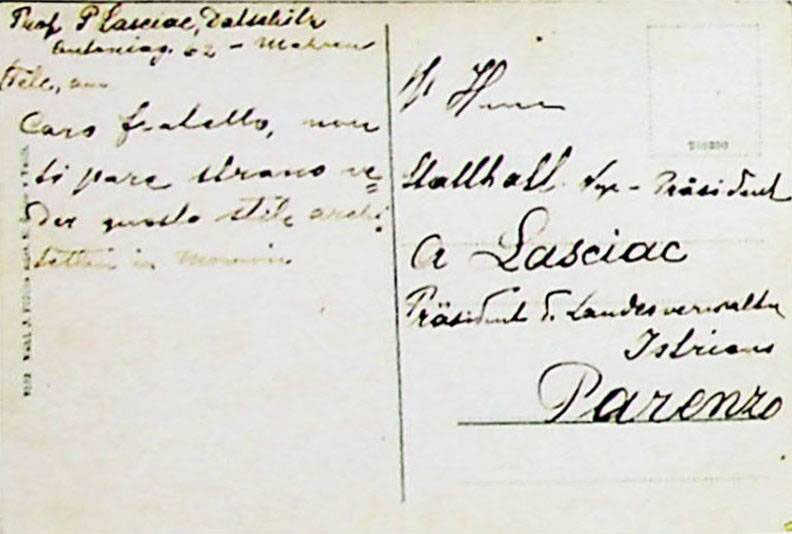 Prof P Lasciac, Datschitz
62 - Mähren
Caro fratello, non
ti pare strano ve=
der questo stile archi
in
Herrn
Statthalt. Vize-Präsident
A Lasciac
Präsident d. Landesverwaltu
Istriens
Parenzo